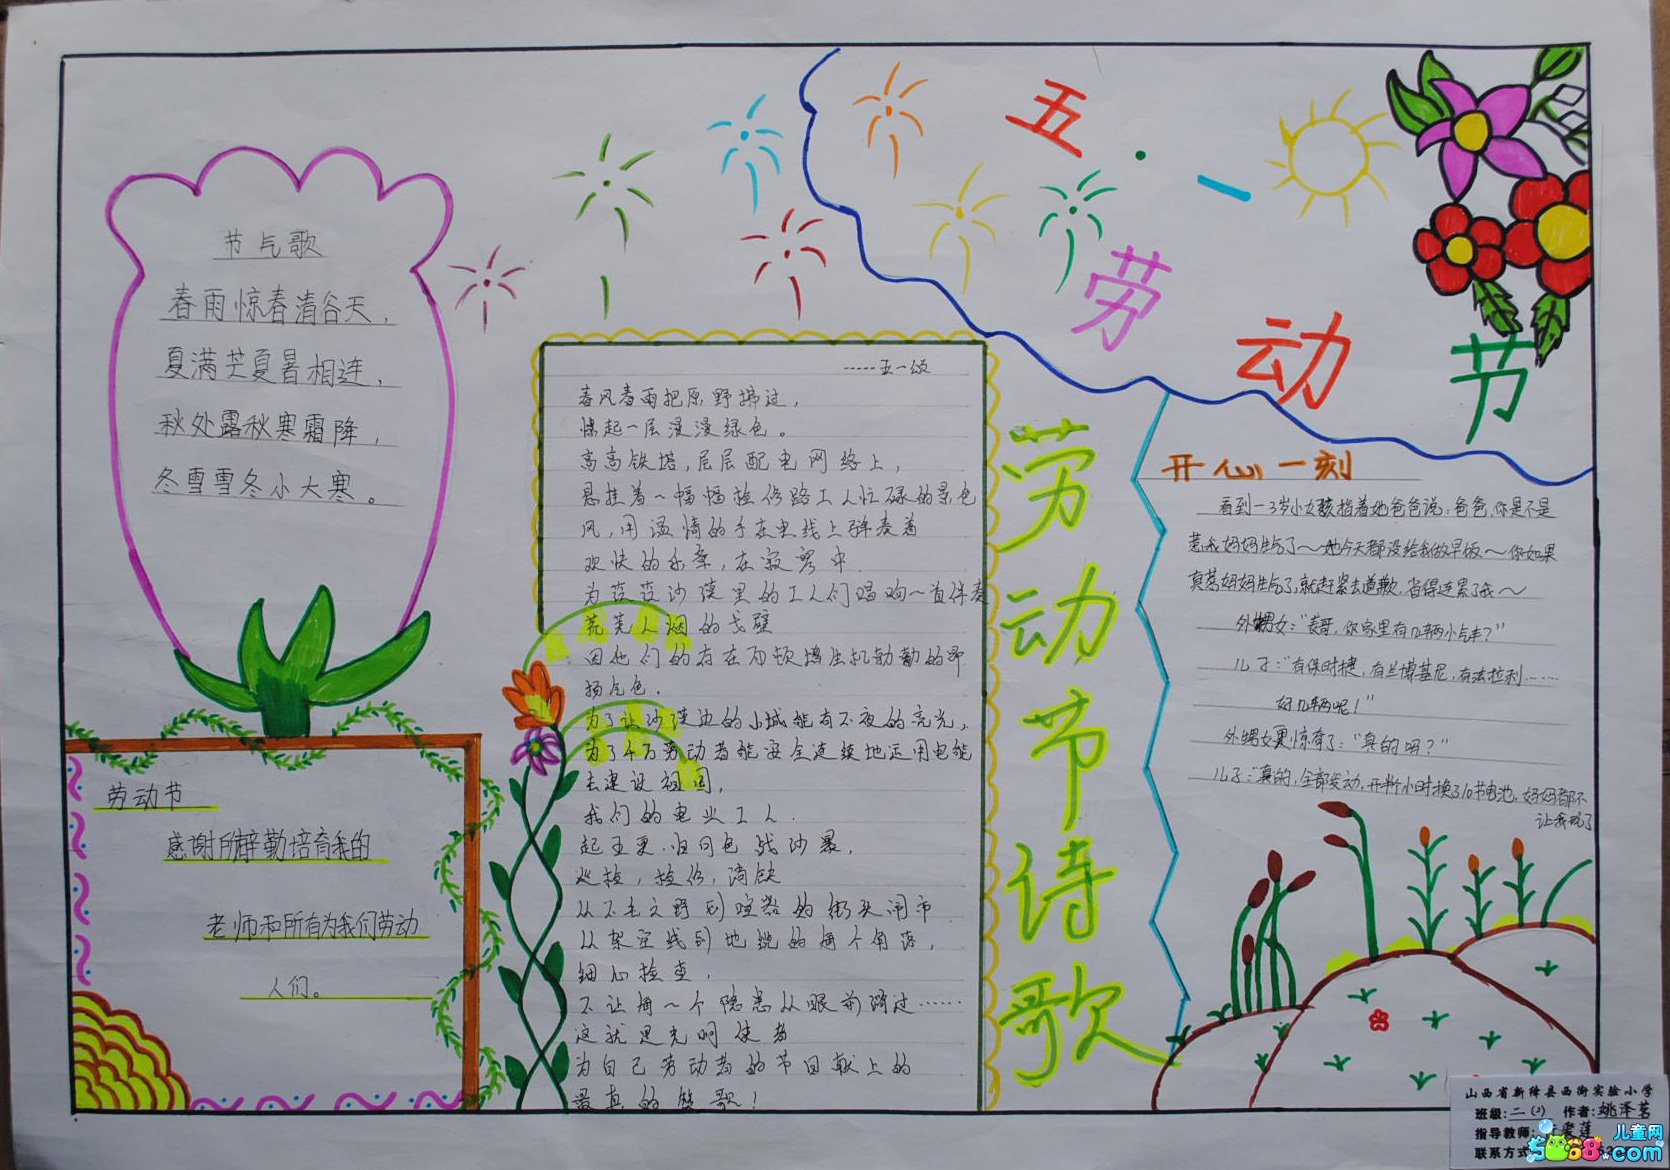 五·一
劳动节
节气歌
春雨惊春清谷天，
夏满芒夏暑相连，
秋处露秋寒霜降，
冬雪雪冬小大寒。
劳动节
感谢所辛勤培育我的
老师和所有为我们劳动
人们。
-----五一颂
春风春雨把原野拂过，
撩起一层漫漫绿色。
高高铁塔，层层配电网络上，
悬挂着一幅幅检修路工人忙碌的景色
风，用温情的手在电线上弹奏着
欢快的乐章，在寂寥中
为茫茫沙漠里的工人们唱响一首伴奏
荒芜人烟的戈壁
因他们的存在而顿增生机勃勃的昂
扬气色．
为了让沙漠边的小城能有不夜的亮光，
为了千万劳动者能安全连续地运用电能
去建设祖国，
我们的电业工人．
起五更．归
沙暴，
巡检，检修，消缺
从不毛之野到喧嚣的街头闹市
从架空线到地缆的每个角落，
细心检查．
不让每一个隐患从眼前跨过……
这就是光明使者
为自己劳动者的节日献上的
最真的赞歌！
劳动节诗歌
开心一刻
看到一3岁小女孩指着她爸爸说：爸爸，你是不是
惹我妈妈生气了～她今天都没给我做早饭～你如果
真惹妈妈生气了，就赶紧去道歉，省得连累了我～
外甥女：“表哥，你家里有几辆小汽车？”
儿子：“有保时捷，有兰博基尼，有法拉利……
好几辆呢！”
外甥女更惊奇了：“真的吗？”
儿子：“真的，全部发动，开半小时换了10节电池，妈妈都不
让我玩了
山西省新绛县西街实验小学
班级：二（2） 作者：姚泽茗
指导教师：
联系方式
儿童网
5068.com